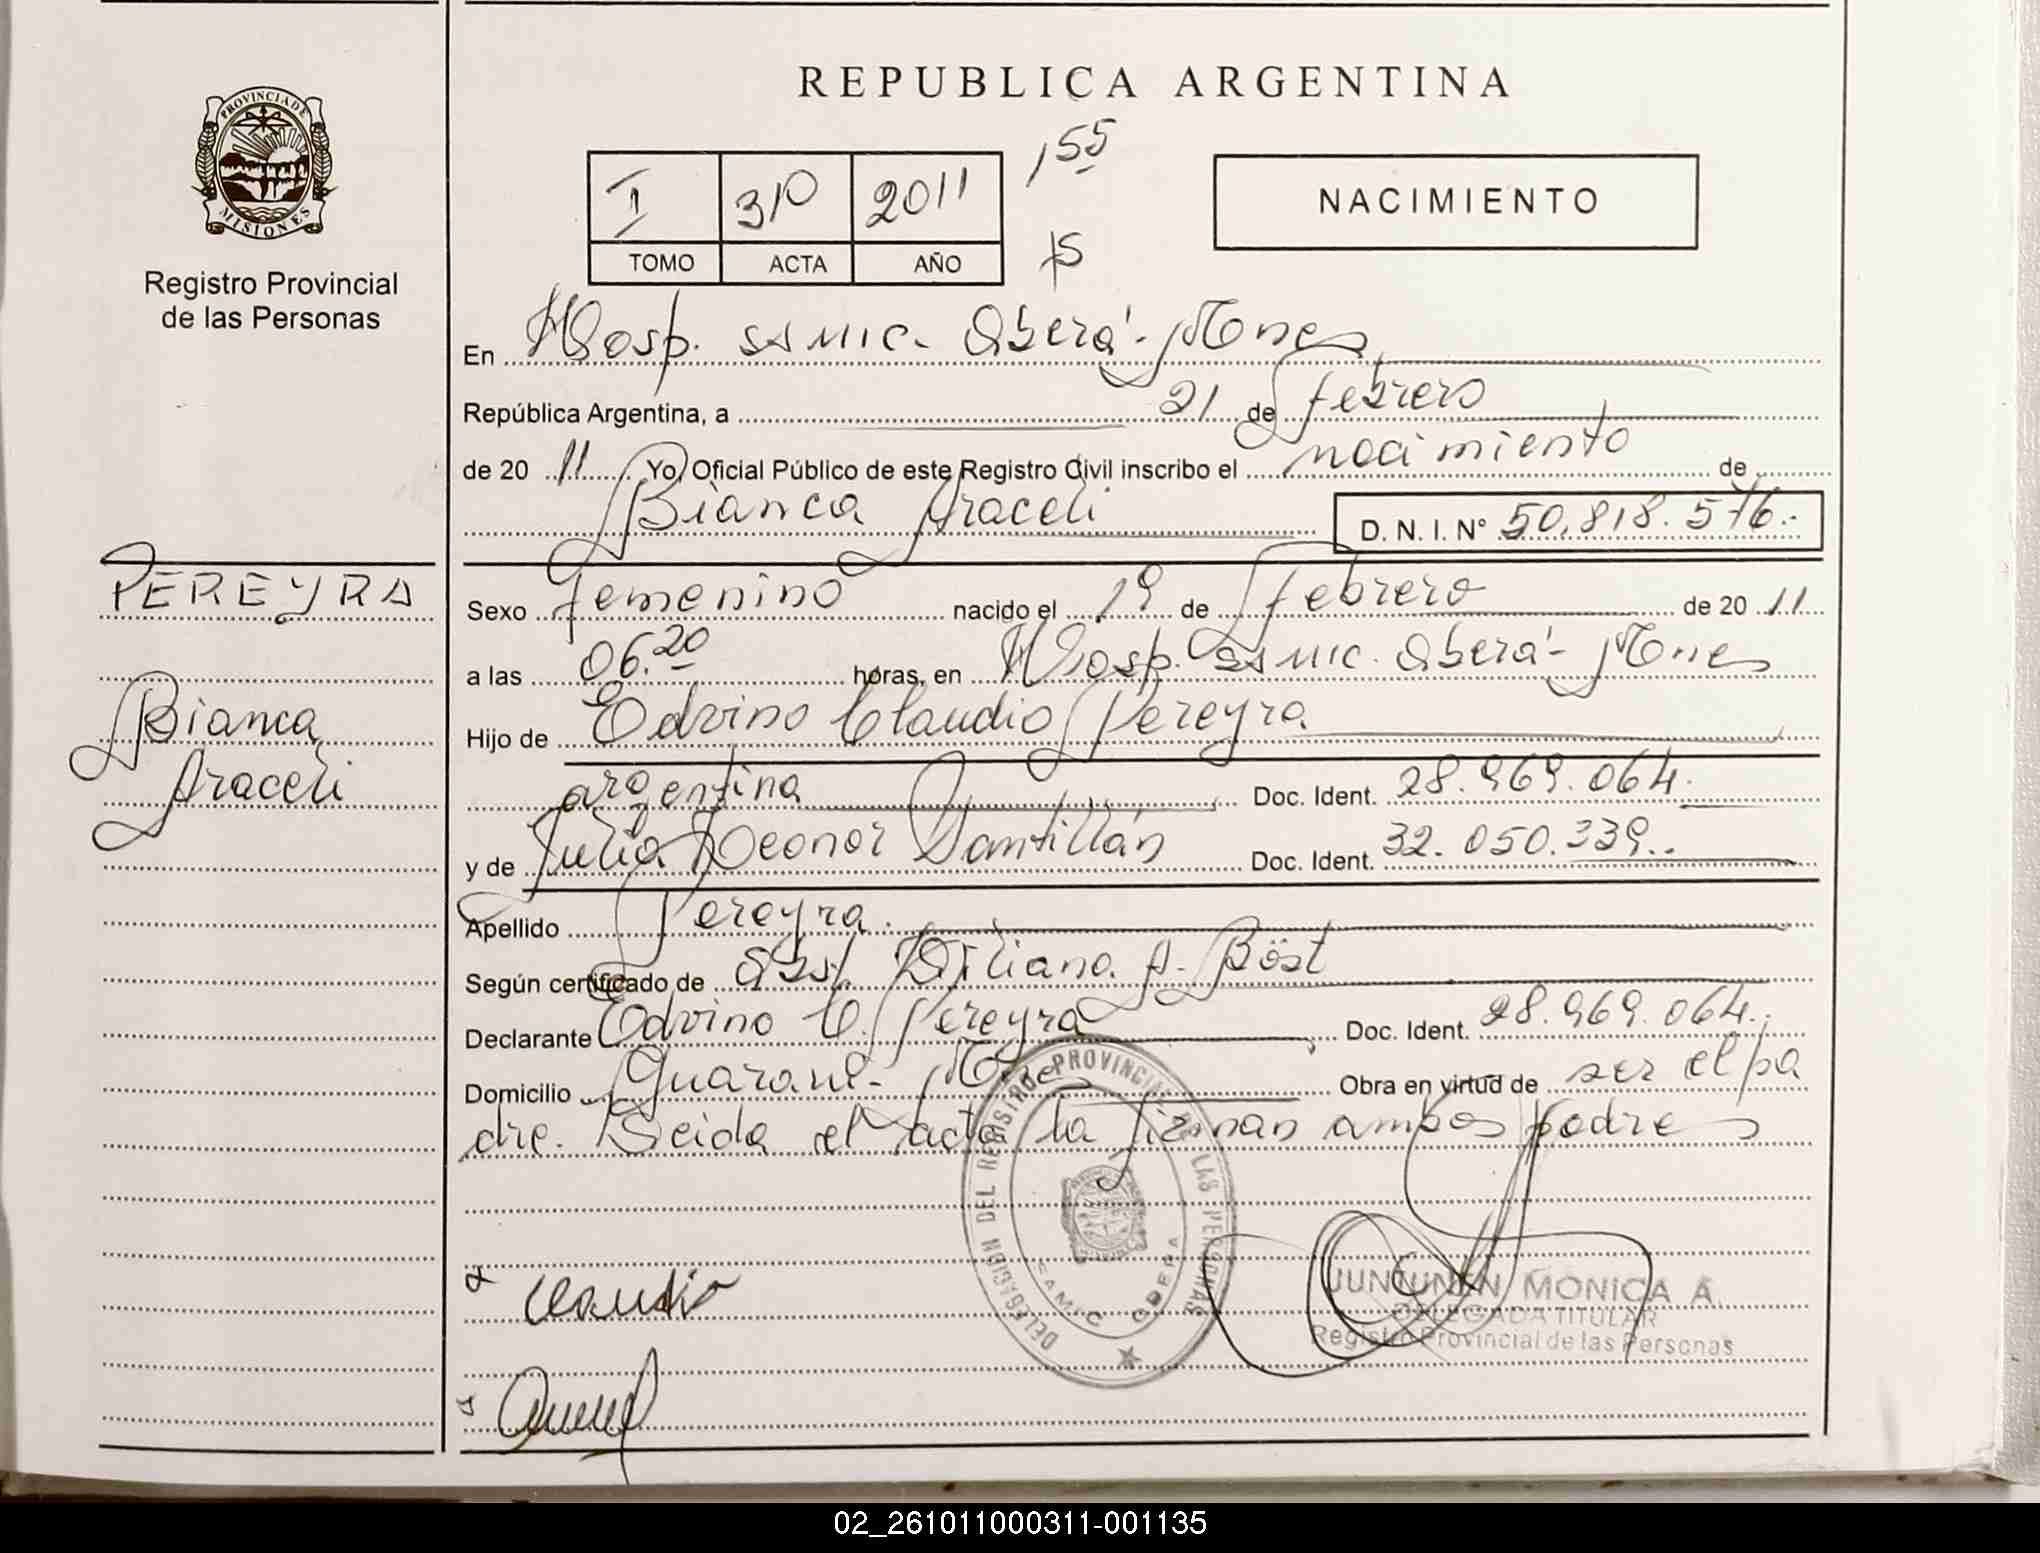 REPUBLICA ARGENTINA
PROVINCIA DE
MISIONES
Registro Provincial
de las Personas
I 310 2011 155
TOMO ACTA AÑO
NACIMIENTO
En Hosp. SAMIC. Oberá - Mnes
República Argentina, a 21 de febrero
de 20 11 Yo, Oficial Público de este Registro Civil inscribo el nacimiento de
Bianca Araceli D. N. I. N° 50.818.576.-
PEREYRA
Bianca
Araceli
Sexo femenino nacido el 19 de febrero de 20 11
a las 06.20 horas, en Hosp. SAMIC. Oberá - Mnes
Hijo de Edvino Claudio Pereyra
argentina Doc. Ident. 28.969.064.
y de Julia Leonor Santillán Doc. Ident. 32.050.339..
Apellido Pereyra.
Según certificado de Obst. Liliana A. Böst
Declarante Edvino C. Pereyra Doc. Ident. 28.969.064.
Domicilio Guaraní - Mnes Obra en virtud de ser el pa
dre. Leida el acta la firman ambos padres
DELEGACION DEL REGISTRO PROVINCIAL DE LAS PERSONAS
SAMIC OBERA
Claudio
JUNTUNEN MONICA A.
DELEGADA TITULAR
Registro Provincial de las Personas
02_261011000311-001135